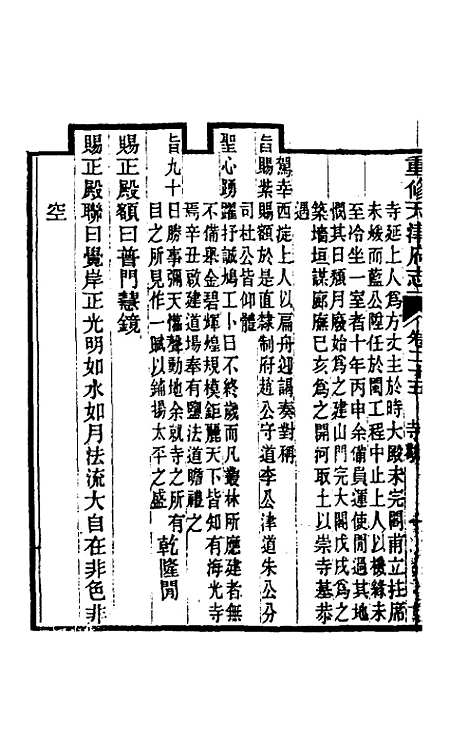 重修天津府志 卷二十五 寺觀
寺延上人爲方丈主於時大殿未完閣甫立拄席
未煖而藍公陞任於閩工程中止上人以機緣未
至冷坐一室者十年丙申余備員運使閒過其地
憫其日頽月廢始爲之建山門完大閣戊戌爲之
築墻垣謀廊廡己亥爲之開河取土以崇寺基恭
遇
駕幸西淀上人以扁舟迎謁奏對稱
旨賜紫賜額於是直隸制府趙公守道李公津道朱公分
司杜公皆仰體
聖心踴躍抒誠鳩工卜日不終歲而凡叢林所應建者無
不備舉金碧輝煌規模鉅麗天下皆知有海光寺
焉辛丑啟建道場奉有鹽法道瞻禮之
旨九十日勝事彌天懽聲動地余就寺之所有
目之所見作一賦以鋪揚太平之盛 乾隆閒
賜正殿額曰普門慧鏡
賜正殿聯曰覺岸正光明如水如月法流大自在非色非
空